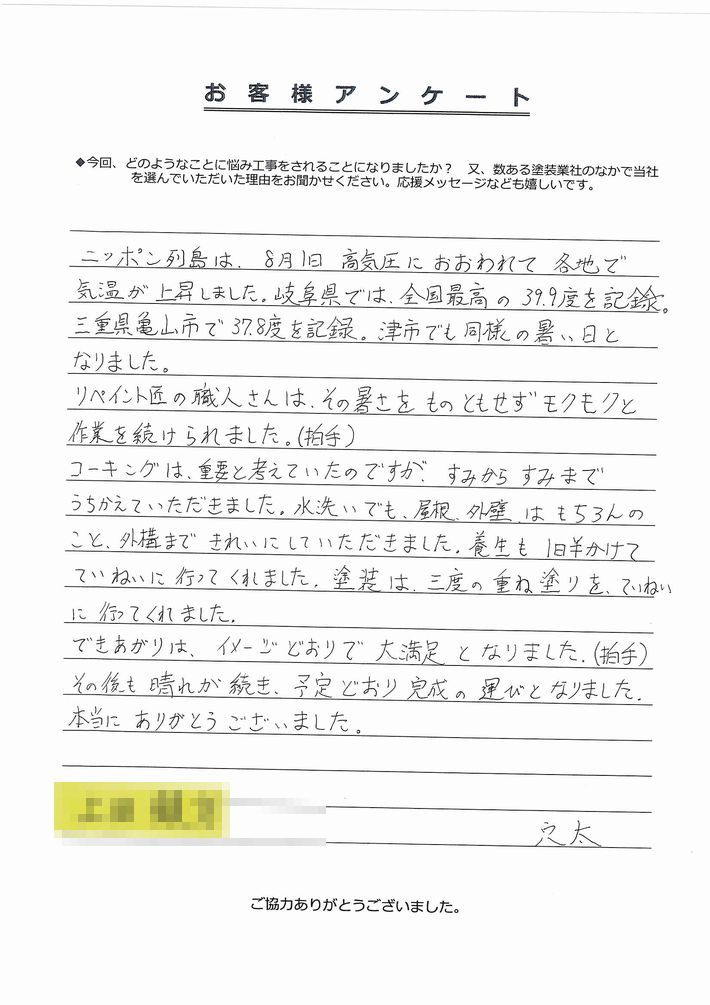 お客様アンケート
◆今回、どのようなことに悩み工事をされることになりましたか？　又、数ある塗装業社のなかで当社
を選んでいただいた理由をお聞かせください。応援メッセージなども嬉しいです。
ニッポン列島は、8月1日 高気圧に おおわれて 各地で
気温が上昇しました。岐阜県では、全国最高の 39.9度を記録。
三重県亀山市で37.8度を記録。津市でも同様の暑い日と
なりました。
リペイント匠の職人さんは、その暑さを ものともせず モクモクと
作業を続けられました。(拍手)
コーキングは、重要と考えていたのですが、すみから すみまで
うちかえていただきました。水洗いでも、屋根、外壁 は もちろんの
こと、外構まで きれいにしていただきました。養生も 1日半かけて
ていねいに 行って くれました。塗装は、三度の 重ね 塗りを、ていねい
に 行ってくれました。
できあがりは、イメージどおりで 大満足 と なりました。(拍手)
その後も 晴れが 続き、予定どおり 完成の 運びとなりました。
本当に ありがとうございました。
穴太
ご協力ありがとうございました。